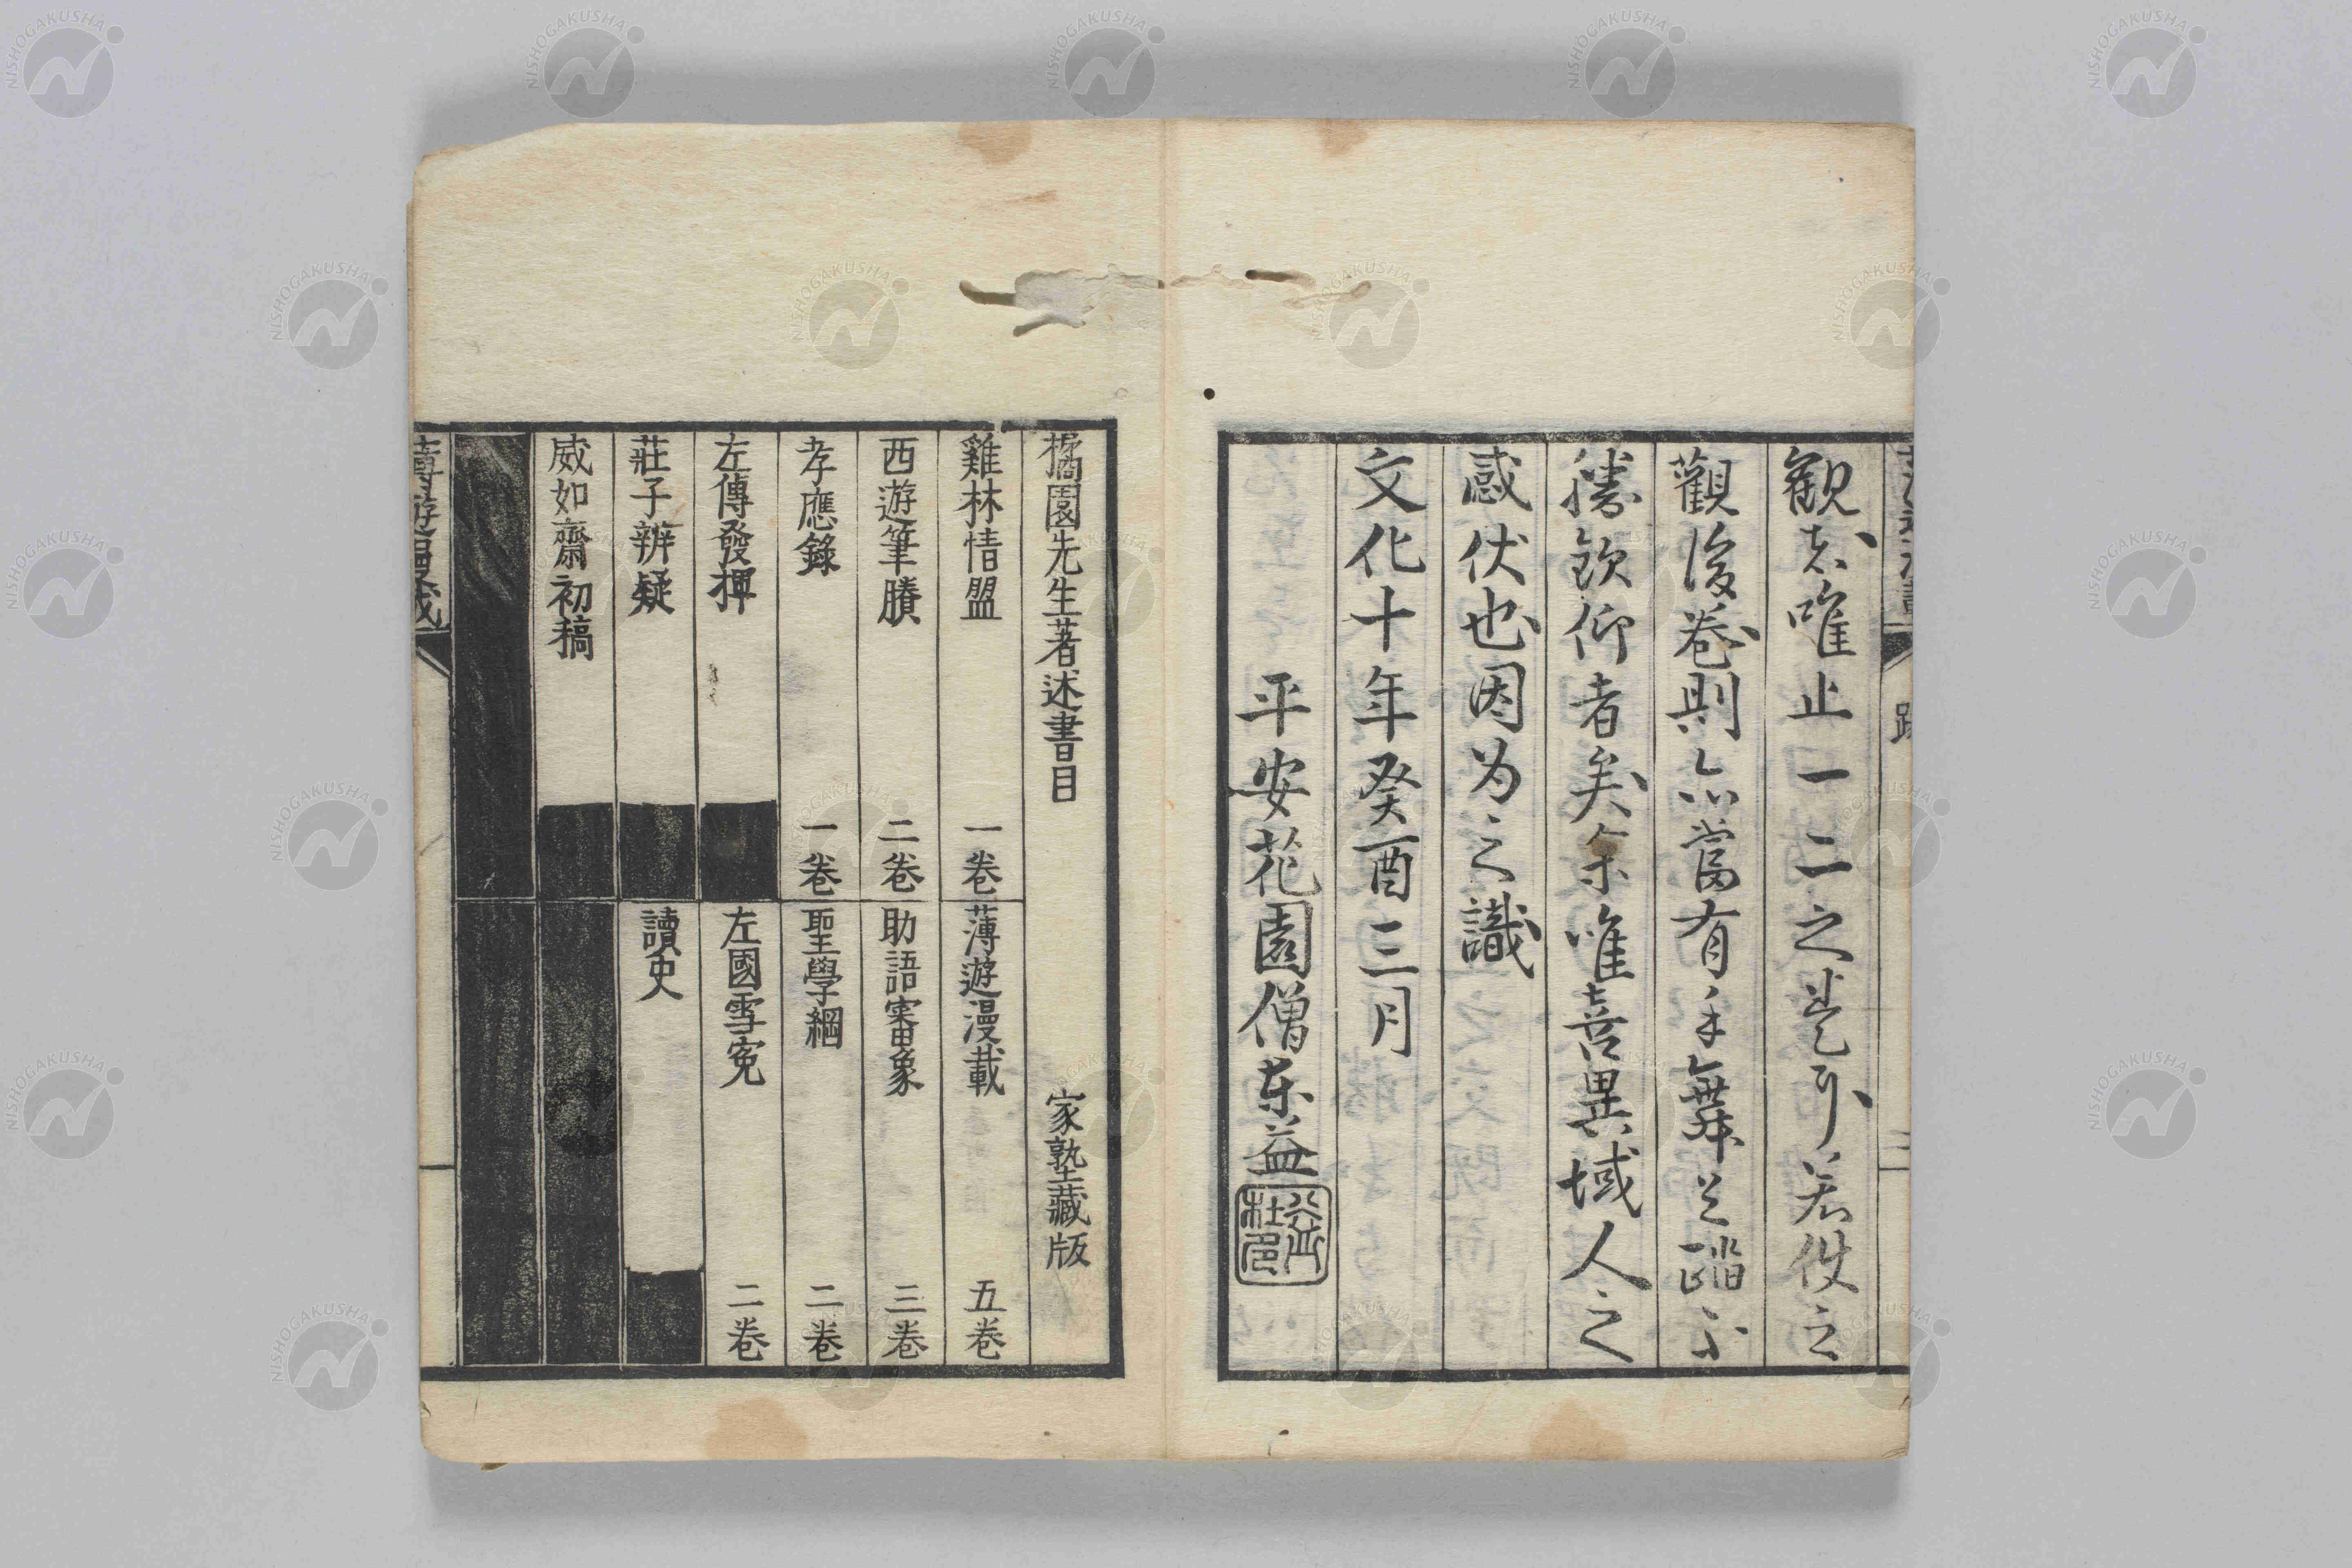 観者唯止一二之卷耳若使之
觀後卷則亦當有手舞足蹈不
勝欽仰者矣余唯喜異域人之
感伏也因为之識
文化十年癸酉三月
平安花園僧东益
橘園先生著述書目 家塾藏版
雞林情盟 一卷 薄遊漫載 五卷
西遊筆賸 二卷 助語審象 三卷
孝應錄 一卷 聖學綱 二卷
左傳發揮 左國雪寃 二卷
莊子辨疑 讀史
威如齋初稿
薄遊漫載